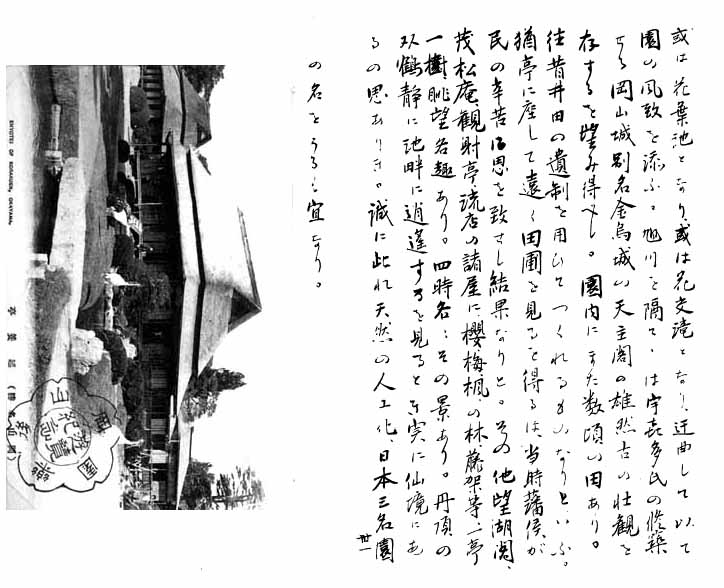 或は花葉池となり或は花交滝となり迂曲して以て
園の風致を添ふ。旭川を隔てゝは宇喜多氏の修築
せる岡山城別名金烏城の天主閣の雄然古の壮観を
存するを望み得べし。園内にまた数頃の田あり。
往昔井田の遺制を用ひてつくれるものなりといふ。
猶亭に座して遠く田圃を見ることを得るは、当時藩侯が
民の辛苦に思を致せし結果なりと。その他望湖閣、
茂松庵、観射亭、流店の諸屋に、櫻、梅、楓、の林、藤架等、一亭
一樹眺望各趣あり。四時各〻その景あり。丹頂の
双鶴静に池畔に逍遥するを見るとき実に仙境にあ
るの思ありき。誠に此れ天然の人工化、日本三名園
の名をうる、宜なり。
卅一
ENYOTEI OF KORAKUEN, OKAYAMA.
亭養延
後楽園
遊覧
紀念